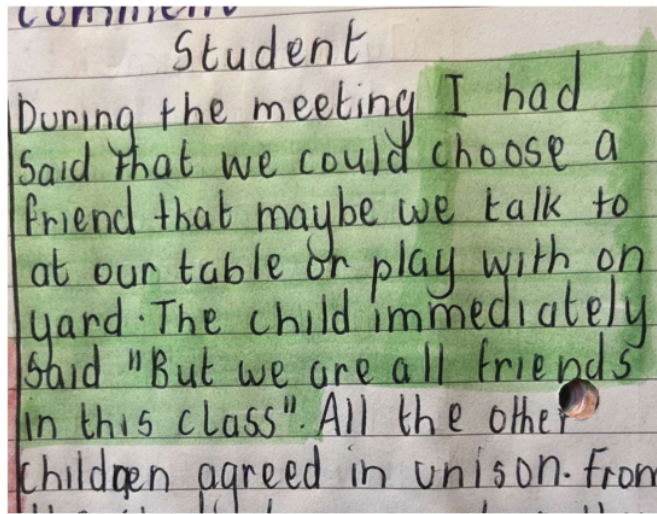 comment
Student
During the meeting I had
Said that we could choose a
friend that maybe we talk to
at our table or play with on
yard. The child immediately
Said "But we are all friends
in this class". All the other
children agreed in unison. From